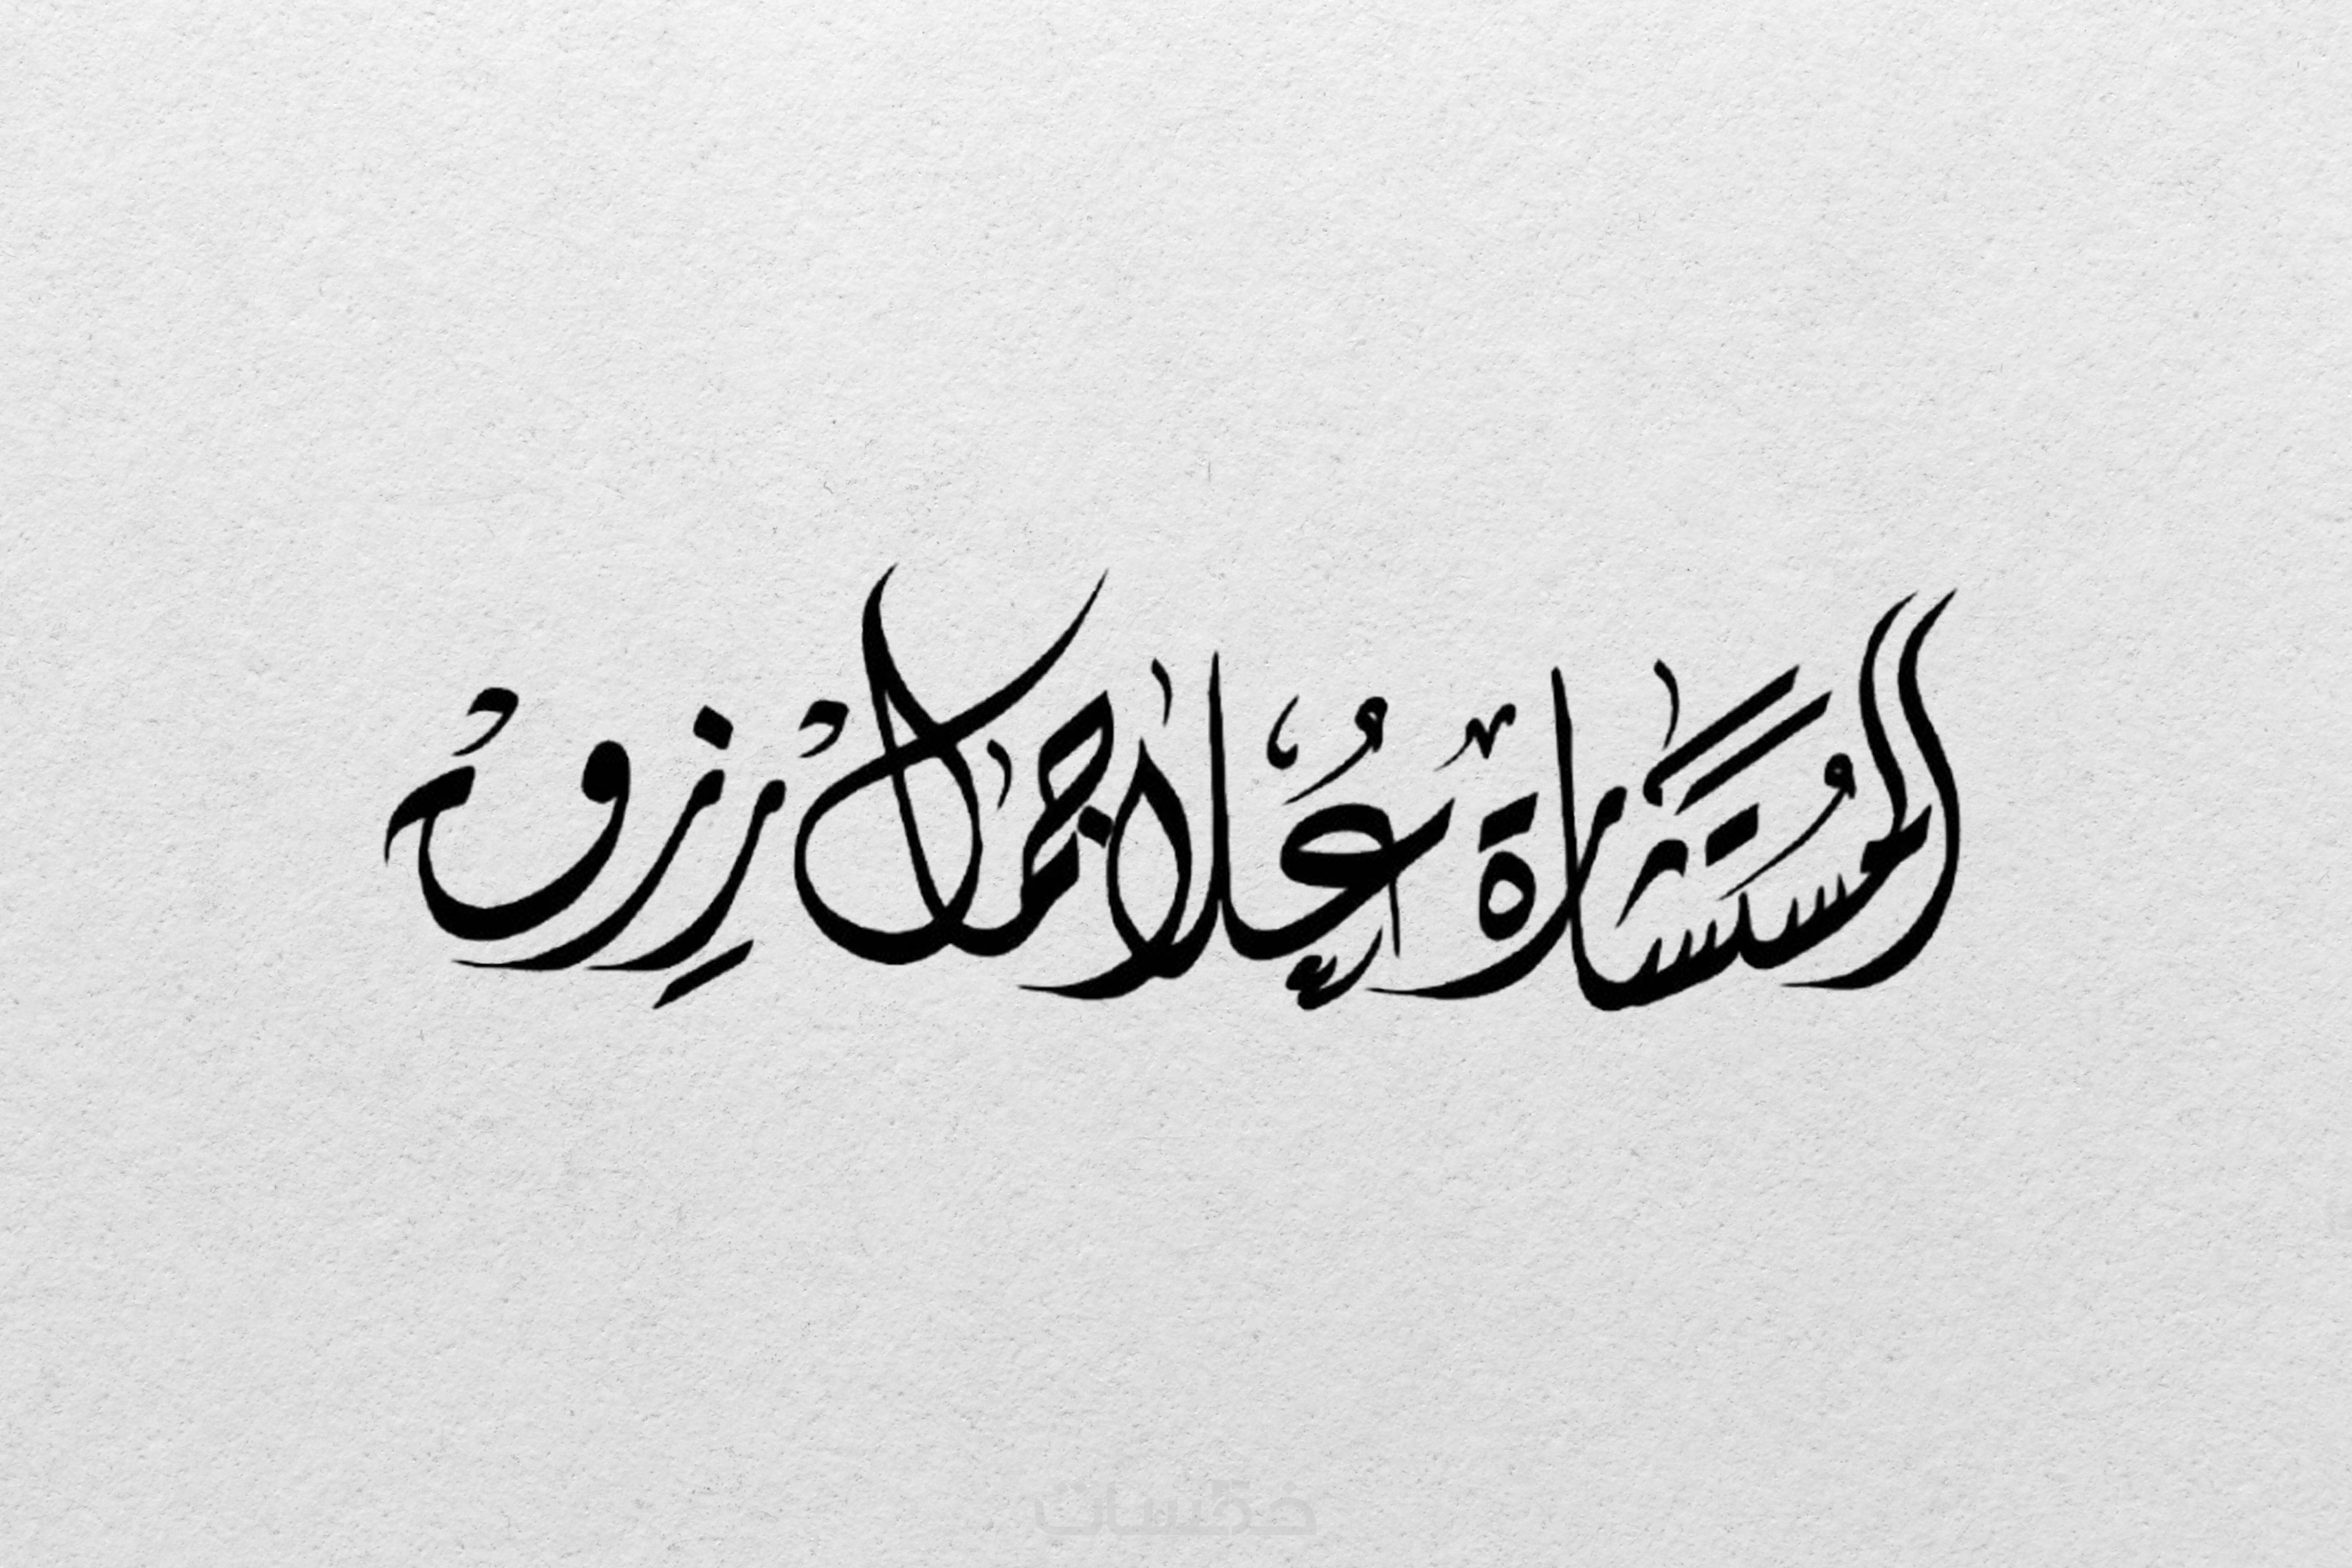 المُسْتَشَارَة عُلا جمال رِزق
خمسات